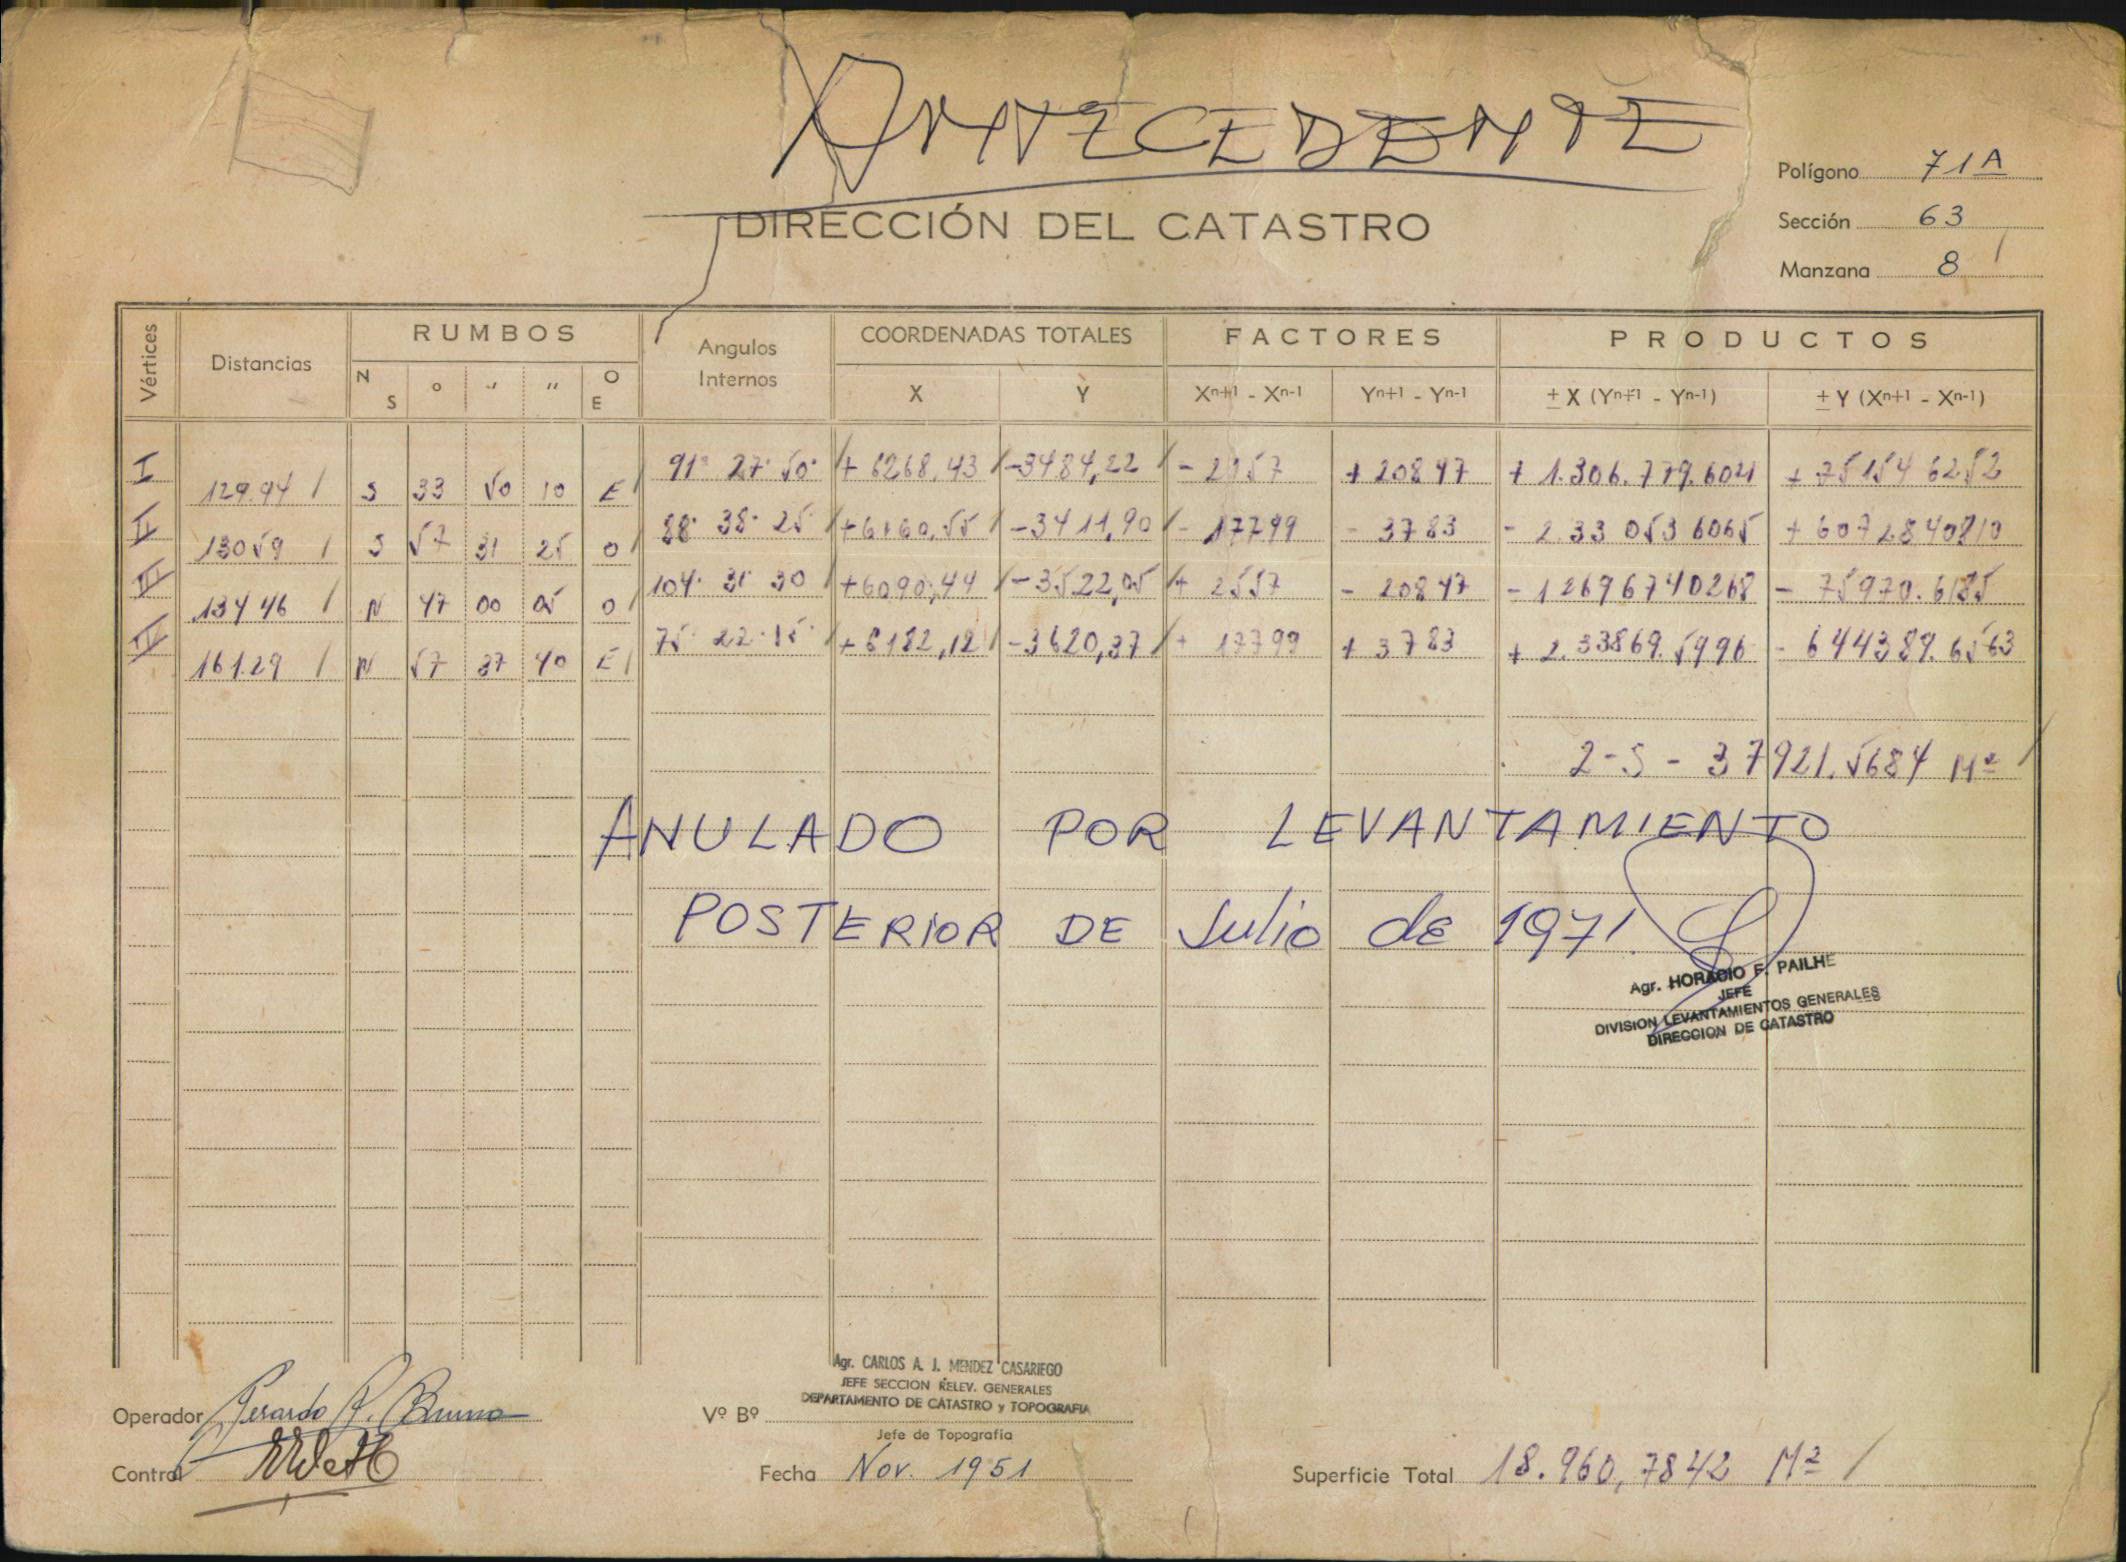 ANTECEDENTE
DIRECCIÓN DEL CATASTRO
Polígono 71A
Sección 63
Manzana 8
Vértices Distancias RUMBOS Angulos Internos COORDENADAS TOTALES FACTORES PRODUCTOS
N S ° ' " O E X Y Xn+1 - Xn-1 Yn+1 - Yn-1 ± X (Yn+1 - Yn-1) ± Y (Xn+1 - Xn-1)
I 91° 27' 50" +6268,43 -3484,22 - 2157 + 20847 + 1.306.779.6021 + 75154 6252
129.94 S 33 50 10 E
II 88° 38' 25 +6160,55 -3411,90 - 17799 - 3783 - 2.33 053 6065 + 6072840810
130 59 S 57 31 25 O
III 104° 31' 30 +6090,44 -3522,05 + 2557 - 20847 - 12696740268 - 75970.6185
134 46 N 47 00 05 O
IV 75° 22' 15" +6182,12 -3620,37 + 17799 + 3783 + 2.33869.5996 - 644389.6563
161.29 N 57 37 40 E
2-S - 37921.5684 M²
ANULADO POR LEVANTAMIENTO
POSTERIOR DE Julio de 1971.
Agr. HORACIO F. PAILHE
JEFE
DIVISION LEVANTAMIENTOS GENERALES
DIRECCION DE CATASTRO
Agr. CARLOS A. J. MENDEZ CASARIEGO
JEFE SECCION RELEV. GENERALES
DEPARTAMENTO DE CATASTRO y TOPOGRAFIA
Operador Gerardo R. Bruno
Vº Bº
Jefe de Topografía
Control
Fecha Nov. 1951
Superficie Total 18.960,7842 M²